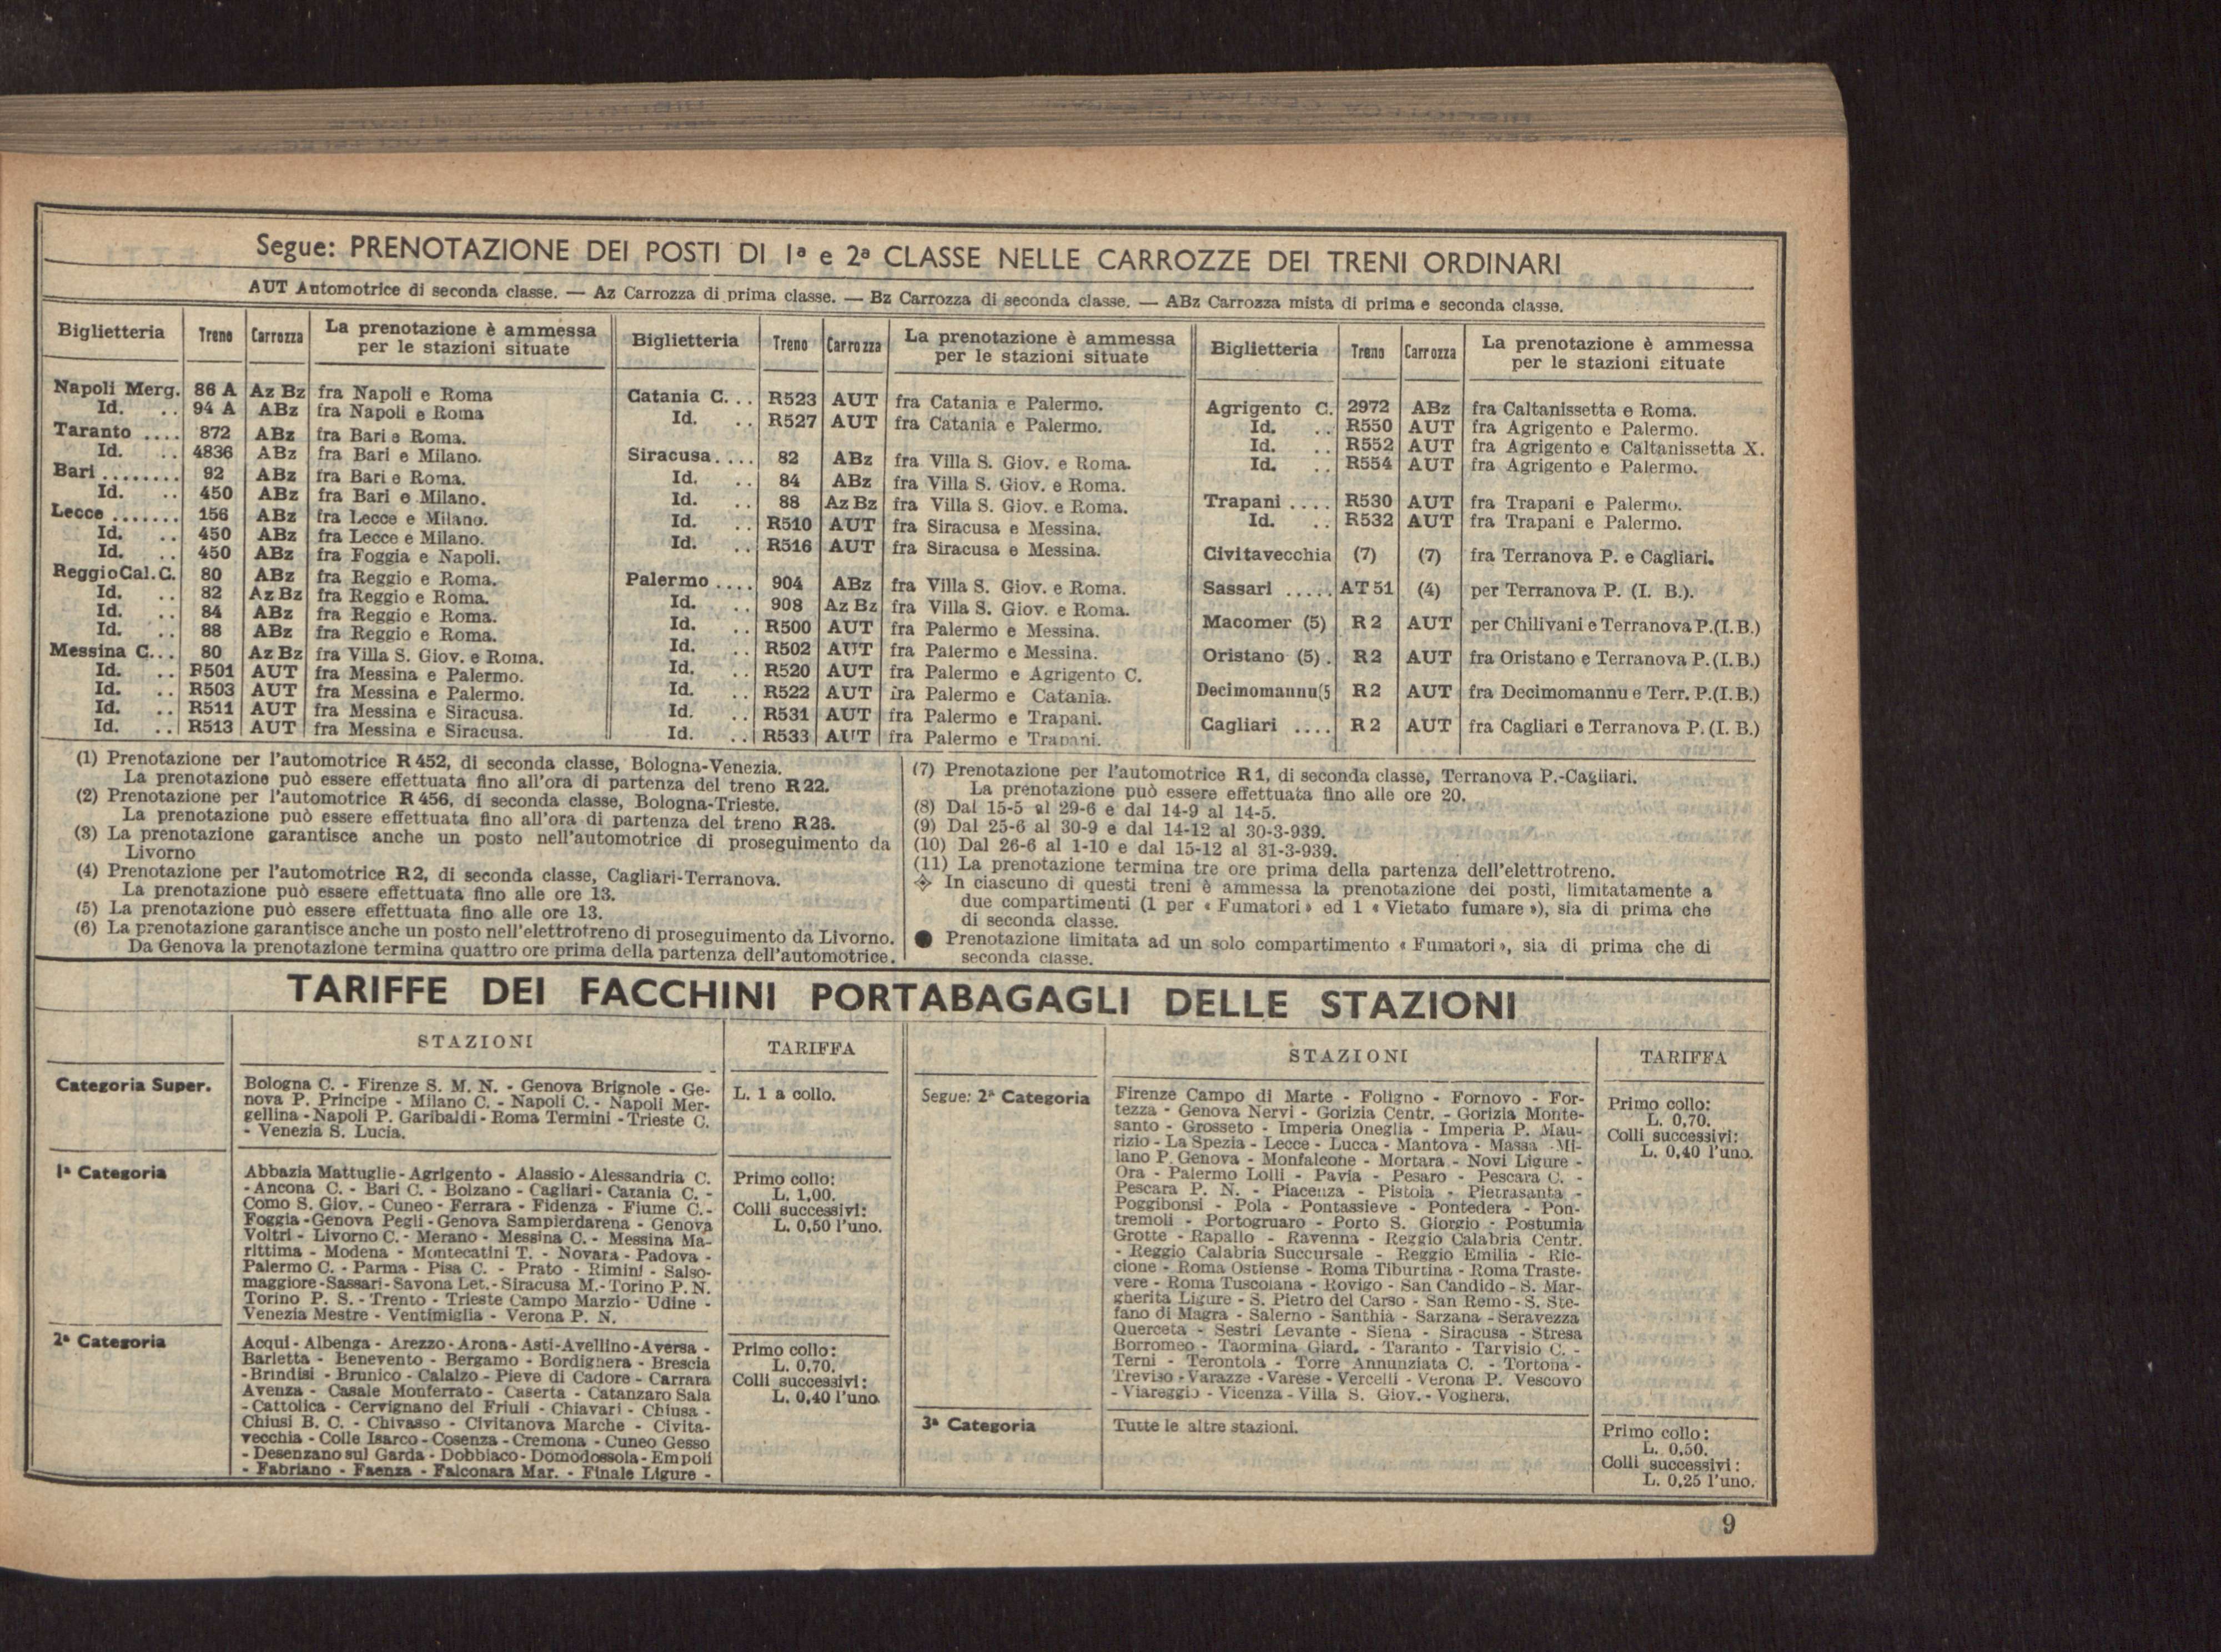 Segue: PRENOTAZIONE DEI POSTI DI 1ª e 2ª CLASSE NELLE CARROZZE DEI TRENI ORDINARI
AUT Automotrice di seconda classe. — Az Carrozza di prima classe. — Bz Carrozza di seconda classe. — ABz Carrozza mista di prima e seconda classe.
Biglietteria Treno Carrozza La prenotazione è ammessa
per le stazioni situate
Napoli Merg. 86 A Az Bz fra Napoli e Roma
Id. .. 94 A ABz fra Napoli e Roma
Taranto .... 872 ABz fra Bari e Roma.
Id. .. 4836 ABz fra Bari e Milano.
Bari ........ 92 ABz fra Bari e Roma.
Id. .. 450 ABz fra Bari e Milano.
Lecce ....... 156 ABz fra Lecce e Milano.
Id. .. 450 ABz fra Lecce e Milano.
Id. .. 450 ABz fra Foggia e Napoli.
Reggio Cal. C. 80 ABz fra Reggio e Roma.
Id. .. 82 Az Bz fra Reggio e Roma.
Id. .. 84 ABz fra Reggio e Roma.
Id. .. 88 ABz fra Reggio e Roma.
Messina C... 80 Az Bz fra Villa S. Giov. e Roma.
Id. .. R501 AUT fra Messina e Palermo.
Id. .. R503 AUT fra Messina e Palermo.
Id. .. R511 AUT fra Messina e Siracusa.
Id. .. R513 AUT fra Messina e Siracusa.
Biglietteria Treno Carrozza La prenotazione è ammessa
per le stazioni situate
Catania C... R523 AUT fra Catania e Palermo.
Id. .. R527 AUT fra Catania e Palermo.
Siracusa.... 82 ABz fra Villa S. Giov. e Roma.
Id. .. 84 ABz fra Villa S. Giov. e Roma.
Id. .. 88 Az Bz fra Villa S. Giov. e Roma.
Id. .. R510 AUT fra Siracusa e Messina.
Id. .. R516 AUT fra Siracusa e Messina.
Palermo .... 904 ABz fra Villa S. Giov. e Roma.
Id. .. 908 Az Bz fra Villa S. Giov. e Roma.
Id. .. R500 AUT fra Palermo e Messina.
Id. .. R502 AUT fra Palermo e Messina.
Id. .. R520 AUT fra Palermo e Agrigento C.
Id. .. R522 AUT fra Palermo e Catania.
Id. .. R531 AUT fra Palermo e Trapani.
Id. .. R533 AUT fra Palermo e Trapani.
Biglietteria Treno Carrozza La prenotazione è ammessa
per le stazioni situate
Agrigento C. 2972 ABz fra Caltanissetta e Roma.
Id. .. R550 AUT fra Agrigento e Palermo.
Id. .. R552 AUT fra Agrigento e Caltanissetta X.
Id. .. R554 AUT fra Agrigento e Palermo.
Trapani .... R530 AUT fra Trapani e Palermo.
Id. .. R532 AUT fra Trapani e Palermo.
Civitavecchia (7) (7) fra Terranova P. e Cagliari.
Sassari ..... AT 51 (4) per Terranova P. (I. B.).
Macomer (5) R 2 AUT per Chilivani e Terranova P. (I. B.)
Oristano (5) . R 2 AUT fra Oristano e Terranova P. (I. B.)
Decimomannu(5 R 2 AUT fra Decimomannu e Terr. P. (I. B.)
Cagliari .... R 2 AUT fra Cagliari e Terranova P. (I. B.)
(1) Prenotazione per l'automotrice R 452, di seconda classe, Bologna-Venezia.
La prenotazione può essere effettuata fino all'ora di partenza del treno R 22.
(2) Prenotazione per l'automotrice R 456, di seconda classe, Bologna-Trieste.
La prenotazione può essere effettuata fino all'ora di partenza del treno R 26.
(3) La prenotazione garantisce anche un posto nell'automotrice di proseguimento da
Livorno
(4) Prenotazione per l'automotrice R 2, di seconda classe, Cagliari-Terranova.
La prenotazione può essere effettuata fino alle ore 13.
(5) La prenotazione può essere effettuata fino alle ore 13.
(6) La prenotazione garantisce anche un posto nell'elettrotreno di proseguimento da Livorno.
Da Genova la prenotazione termina quattro ore prima della partenza dell'automotrice.
(7) Prenotazione per l'automotrice R 1, di seconda classe, Terranova P.-Cagliari.
La prenotazione può essere effettuata fino alle ore 20.
(8) Dal 15-5 al 29-6 e dal 14-9 al 14-5.
(9) Dal 25-6 al 30-9 e dal 14-12 al 30-3-939.
(10) Dal 26-6 al 1-10 e dal 15-12 al 31-3-939.
(11) La prenotazione termina tre ore prima della partenza dell'elettrotreno.
In ciascuno di questi treni è ammessa la prenotazione dei posti, limitatamente a
due compartimenti (1 per « Fumatori » ed 1 « Vietato fumare »), sia di prima che
di seconda classe.
● Prenotazione limitata ad un solo compartimento « Fumatori », sia di prima che di
seconda classe.
TARIFFE DEI FACCHINI PORTABAGAGLI DELLE STAZIONI
STAZIONI TARIFFA
Categoria Super.
Bologna C. - Firenze S. M. N. - Genova Brignole - Ge-
nova P. Principe - Milano C. - Napoli C. - Napoli Mer-
gellina - Napoli P. Garibaldi - Roma Termini - Trieste C.
- Venezia S. Lucia.
L. 1 a collo.
1ª Categoria
Abbazia Mattuglie - Agrigento - Alassio - Alessandria C.
- Ancona C. - Bari C. - Bolzano - Cagliari - Catania C. -
Como S. Giov. - Cuneo - Ferrara - Fidenza - Fiume C. -
Foggia - Genova Pegli - Genova Sampierdarena - Genova
Voltri - Livorno C. - Merano - Messina C. - Messina Ma-
rittima - Modena - Montecatini T. - Novara - Padova -
Palermo C. - Parma - Pisa C. - Prato - Rimini - Salso-
maggiore - Sassari - Savona Let. - Siracusa M. - Torino P. N.
Torino P. S. - Trento - Trieste Campo Marzio - Udine -
Venezia Mestre - Ventimiglia - Verona P. N.
Primo collo:
L. 1,00.
Colli successivi:
L. 0,50 l'uno.
2ª Categoria
Acqui - Albenga - Arezzo - Arona - Asti - Avellino - Aversa -
Barletta - Benevento - Bergamo - Bordighera - Brescia
- Brindisi - Brunico - Calalzo - Pieve di Cadore - Carrara
Avenza - Casale Monferrato - Caserta - Catanzaro Sala
- Cattolica - Cervignano del Friuli - Chiavari - Chiusa -
Chiusi B. C. - Chivasso - Civitanova Marche - Civita-
vecchia - Colle Isarco - Cosenza - Cremona - Cuneo Gesso
- Desenzano sul Garda - Dobbiaco - Domodossola - Empoli
- Fabriano - Faenza - Falconara Mar. - Finale Ligure -
Primo collo:
L. 0,70.
Colli successivi:
L. 0,40 l'uno
STAZIONI TARIFFA
Segue: 2ª Categoria
Firenze Campo di Marte - Foligno - Fornovo - For-
tezza - Genova Nervi - Gorizia Centr. - Gorizia Monte-
santo - Grosseto - Imperia Oneglia - Imperia P. Mau-
rizio - La Spezia - Lecce - Lucca - Mantova - Massa - Mi-
lano P. Genova - Monfalcone - Mortara - Novi Ligure -
Ora - Palermo Lolli - Pavia - Pesaro - Pescara C. -
Pescara P. N. - Piacenza - Pistoia - Pietrasanta -
Poggibonsi - Pola - Pontassieve - Pontedera - Pon-
tremoli - Portogruaro - Porto S. Giorgio - Postumia
Grotte - Rapallo - Ravenna - Reggio Calabria Centr.
- Reggio Calabria Succursale - Reggio Emilia - Ric-
cione - Roma Ostiense - Roma Tiburtina - Roma Traste-
vere - Roma Tuscolana - Rovigo - San Candido - S. Mar-
gherita Ligure - S. Pietro del Carso - San Remo - S. Ste-
fano di Magra - Salerno - Santhià - Sarzana - Seravezza
Querceta - Sestri Levante - Siena - Siracusa - Stresa
Borromeo - Taormina Giard. - Taranto - Tarvisio C. -
Terni - Terontola - Torre Annunziata C. - Tortona -
Treviso - Varazze - Varese - Vercelli - Verona P. Vescovo
- Viareggio - Vicenza - Villa S. Giov. - Voghera.
Primo collo:
L. 0,70.
Colli successivi:
L. 0,40 l'uno.
3ª Categoria
Tutte le altre stazioni.
Primo collo:
L. 0,50.
Colli successivi:
L. 0,25 l'uno.
9